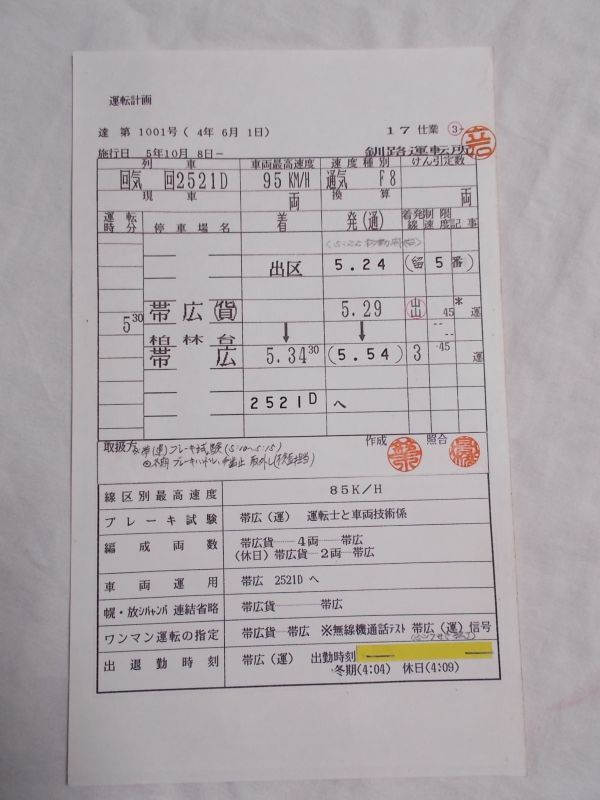 運転計画
達 第 1001号 ( 4年 6月 1日) 17 仕業 3-
施行日 5年10月 8日- 釧路運転所
列車 車両最高速度 速度種別 けん引定数
回気 回2521D 95 KM/H 通気 F8
現車 両 換算 両
運転時分 停車場名 着 発(通) 着発線 制限速度 記事
出区 5.24 (留 5番)
帯広貨 5.29 出 45 * 運
5 30
柏林台 ↓ ↓ -- --
帯広 5.34 30 (5.54) 3 45 運
2521D へ
取扱方 作成 照合
線区別最高速度 85K/H
ブレーキ試験 帯広(運) 運転士と車両技術係
編成両数 帯広貨――4両――帯広
(休日)帯広貨―2両―帯広
車両運用 帯広 2521D へ
幌・放シバャンパ 連結省略 帯広貨――帯広
ワンマン運転の指定 帯広貨―帯広 ※無線機通話テスト 帯広(運)信号
出退勤時刻 帯広(運) 出勤時刻
冬期(4:04) 休日(4:09)